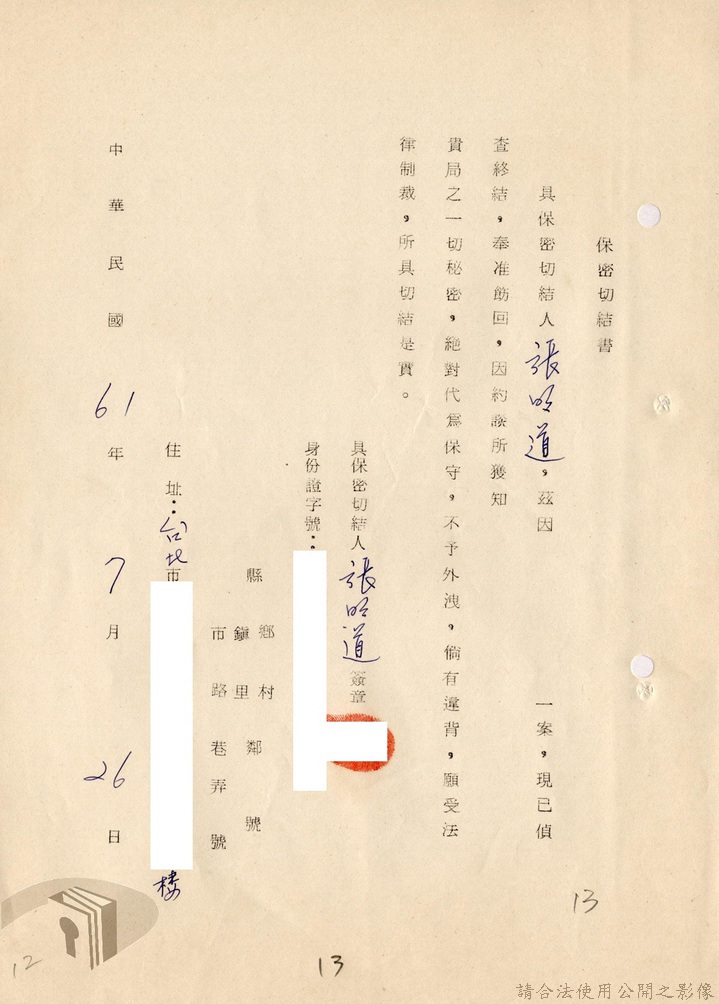 保密切結書
具保密切結人張明道，茲因　一案，現已偵
查終結，奉准飭回，因約談所獲知
貴局之一切秘密，絕對代為保守，不予外洩，倘有違背，願受法
律制裁，所具切結是實。
具保密切結人張明道簽章
身份證字號：
縣　鄉　村　鄰　號
市　鎮　里
市　路　巷　弄　號
住址：台北市　樓
中華民國61年7月26日
13
13
12
請合法使用公開之影像